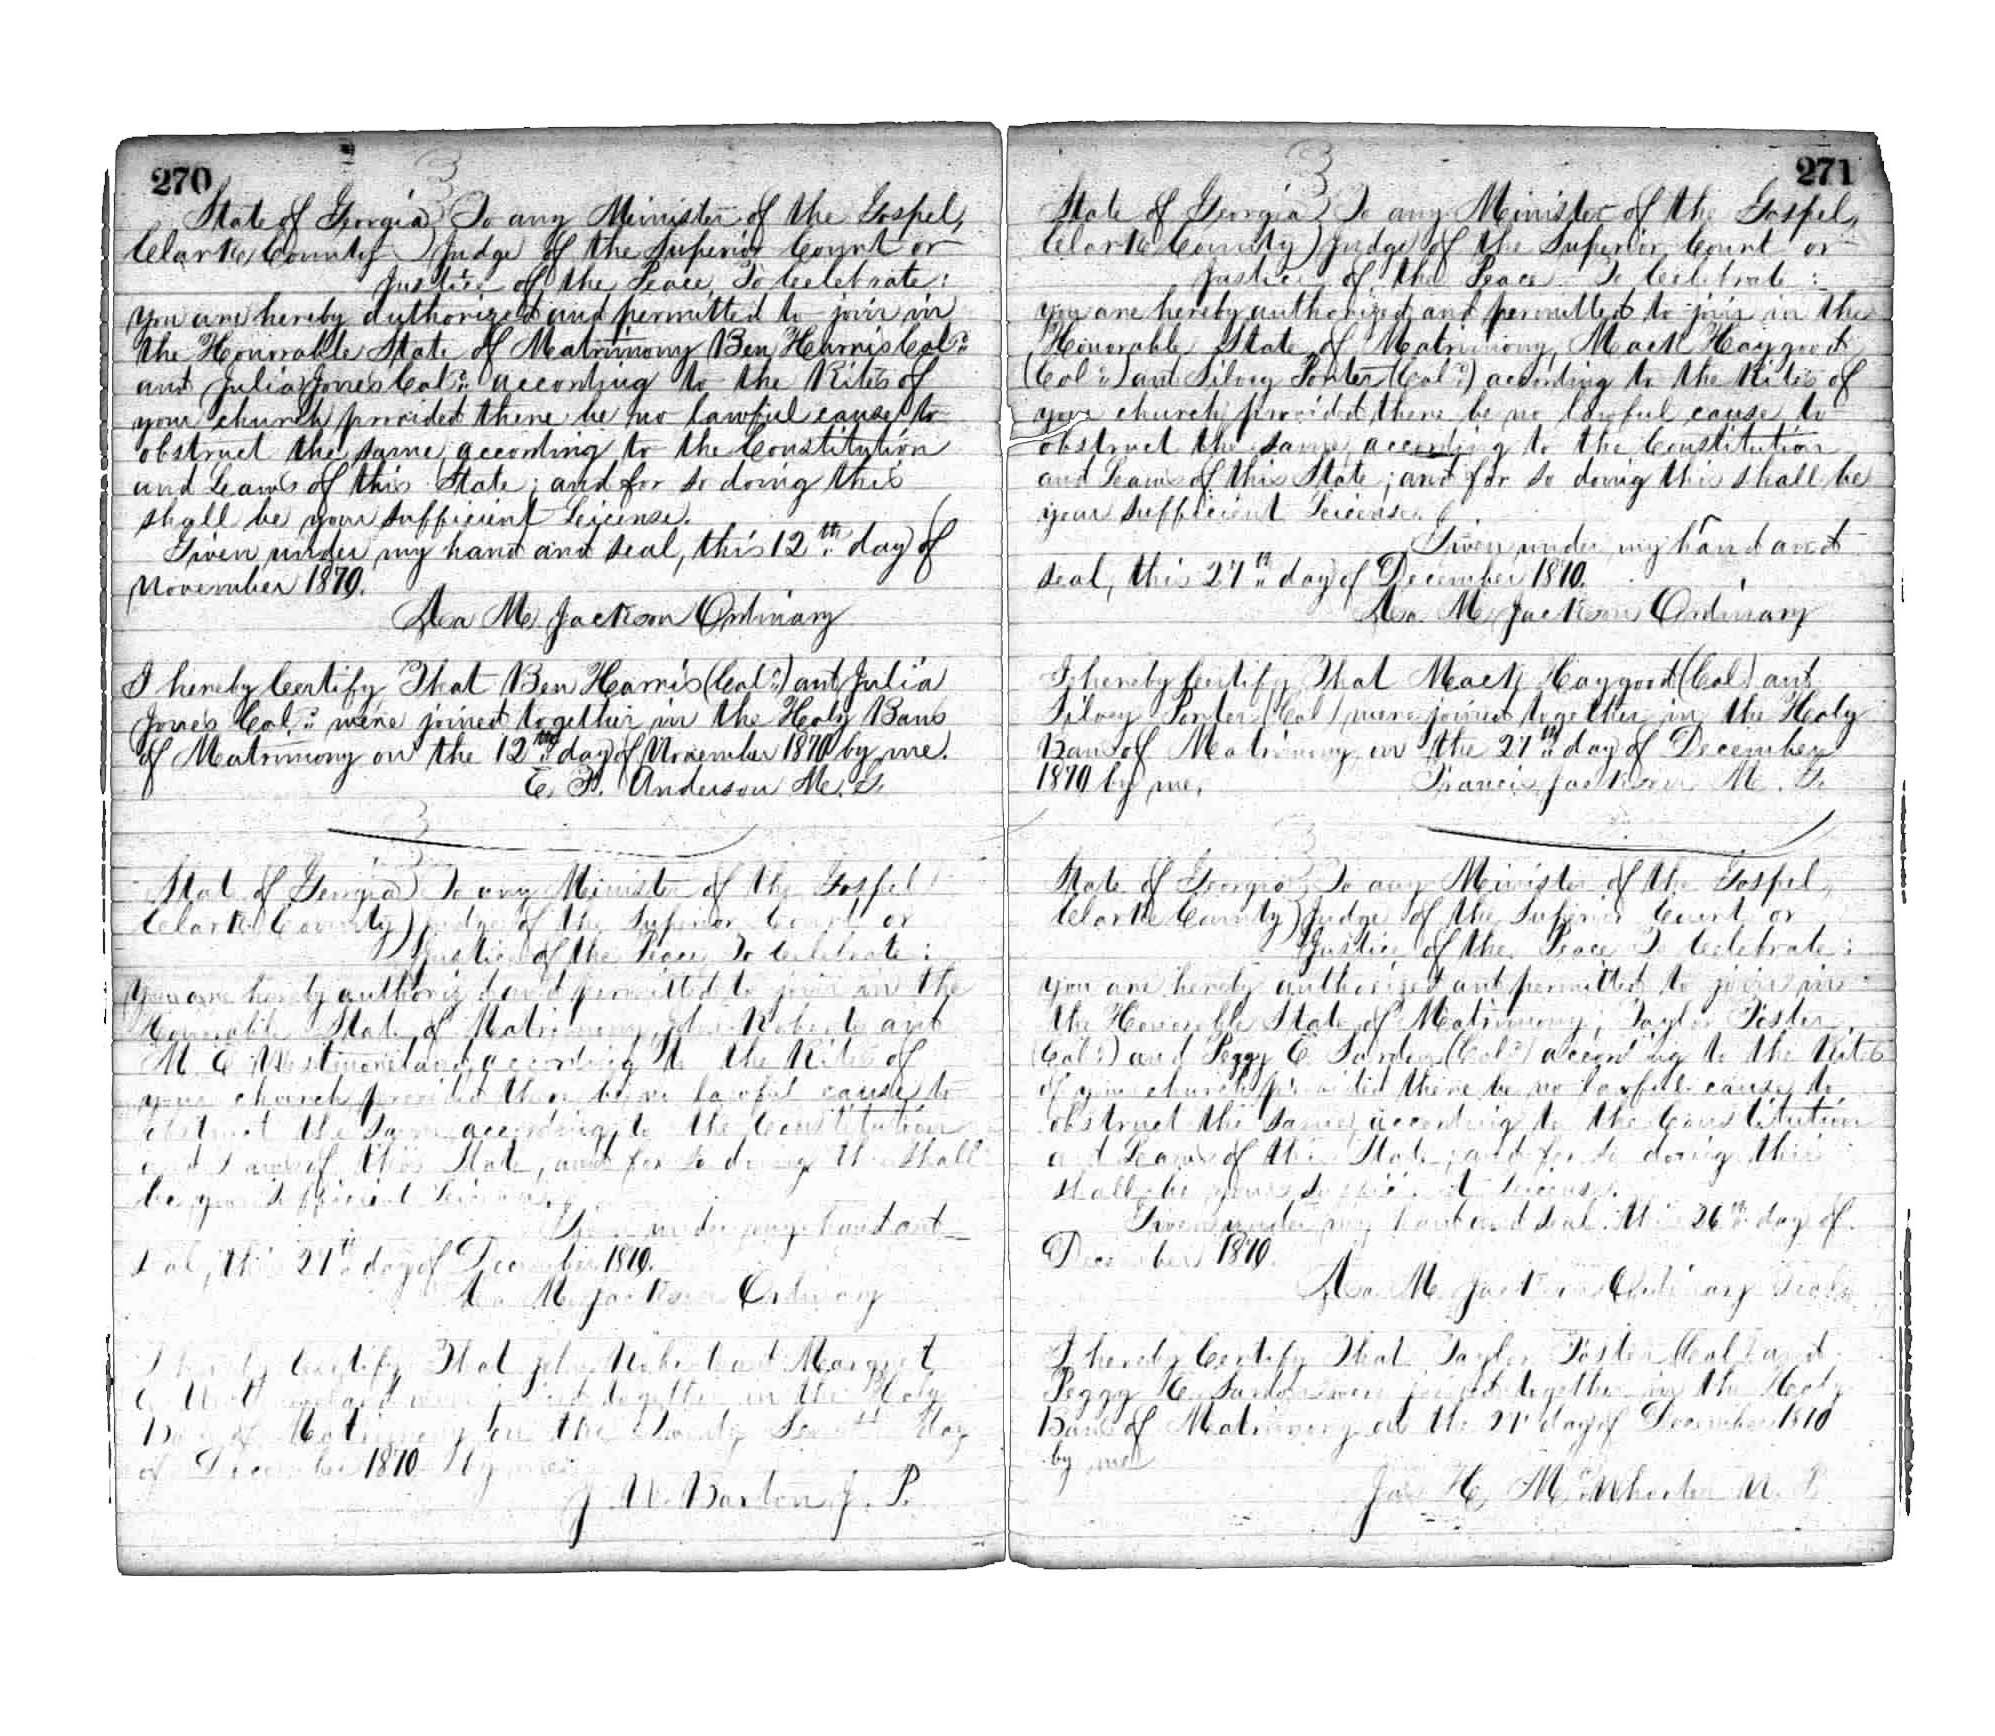 270
State of Georgia } To any Minister of the Gospel,
Clarke County } Judge of the Superior Court or
Justice of the Peace To Celebrate:
You are hereby authorized and permitted to join in
the Honorable State of Matrimony Ben Harris Col^d
and Julia Jones Col^d according to the Rites of
your church provided there be no lawful cause to
obstruct the same, according to the Constitution
and Laws of this State; and for so doing this
shall be your sufficient License.
Given under my hand and seal, this 12th day of
November 1870.
Asa M. Jackson Ordinary
I hereby Certify That Ben Harris (Col^d) and Julia
Jones Col^d were joined together in the Holy Bans
of Matrimony on the 12th day of November 1870 by me.
E. P. Anderson M. G.
Stat of Georgia } To any Minister of the Gospel
Clarke County } Judge of the Superior Court or
Justice of the Peace To Celebrate:
You are hereby authorized and permitted to join in the
Honorable State of Matrimony, John Roberts and
M. E. Westmoreland, according to the Rites of
your church provided there be no lawful cause to
obstruct the same according to the Constitution
and Laws of this State, and for so doing this shall
be your sufficient License.
Given under my hand and
seal, this 27th day of December 1870.
Asa M. Jackson Ordinary
I hereby Certify That John Roberts and Margret
E Westmoreland were joined together in the Holy
Bans of Matrimony on the Twenty Seventh Day
of December 1870 by me
J. W. Barton J. P.
271
State of Georgia } To any Minister of the Gospel,
Clarke County } Judge of the Superior Court or
Justice of the Peace To Celebrate:
you are hereby authorized and permitted to join in the
Honorable State of Matrimony, Mack Haygood
(Col^d) and Silvey Porter (Col^d) according to the Rites of
your church, provided there be no lawful cause to
obstruct the same, according to the Constitution
and Laws of this State; and for so doing this shall be
your sufficient License.
Given under my hand and
seal, this 27th day of December 1870.
Asa M. Jackson Ordinary
I hereby Certify That Mack Haygood (Col) and
Silvey Porter (Col) were joined together in the Holy
Bans of Matrimony on the 27th day of December
1870 by me,	Francis Jackson M. G.
State of Georgia } To any Minister of the Gospel,
Clarke County } Judge of the Superior Court or
Justice of the Peace To Celebrate:
you are hereby authorized and permitted to join in
the Honorable State of Matrimony, Taylor Foster
(Col^d) and Peggy E. (Col^d) according to the Rites
of your church provided there be no lawful cause to
obstruct the same, according to the Constitution
and Laws of this State; and for so doing this
shall be your sufficient License.
Given under my hand and seal this 26th day of
December 1870.
Asa M. Jackson Ordinary Seal
I hereby Certify That Taylor Foster Col and
Peggy were joined together in the Holy
Bans of Matrimony on the day of December 1870
by me
Jas H. McWhorter N. P.